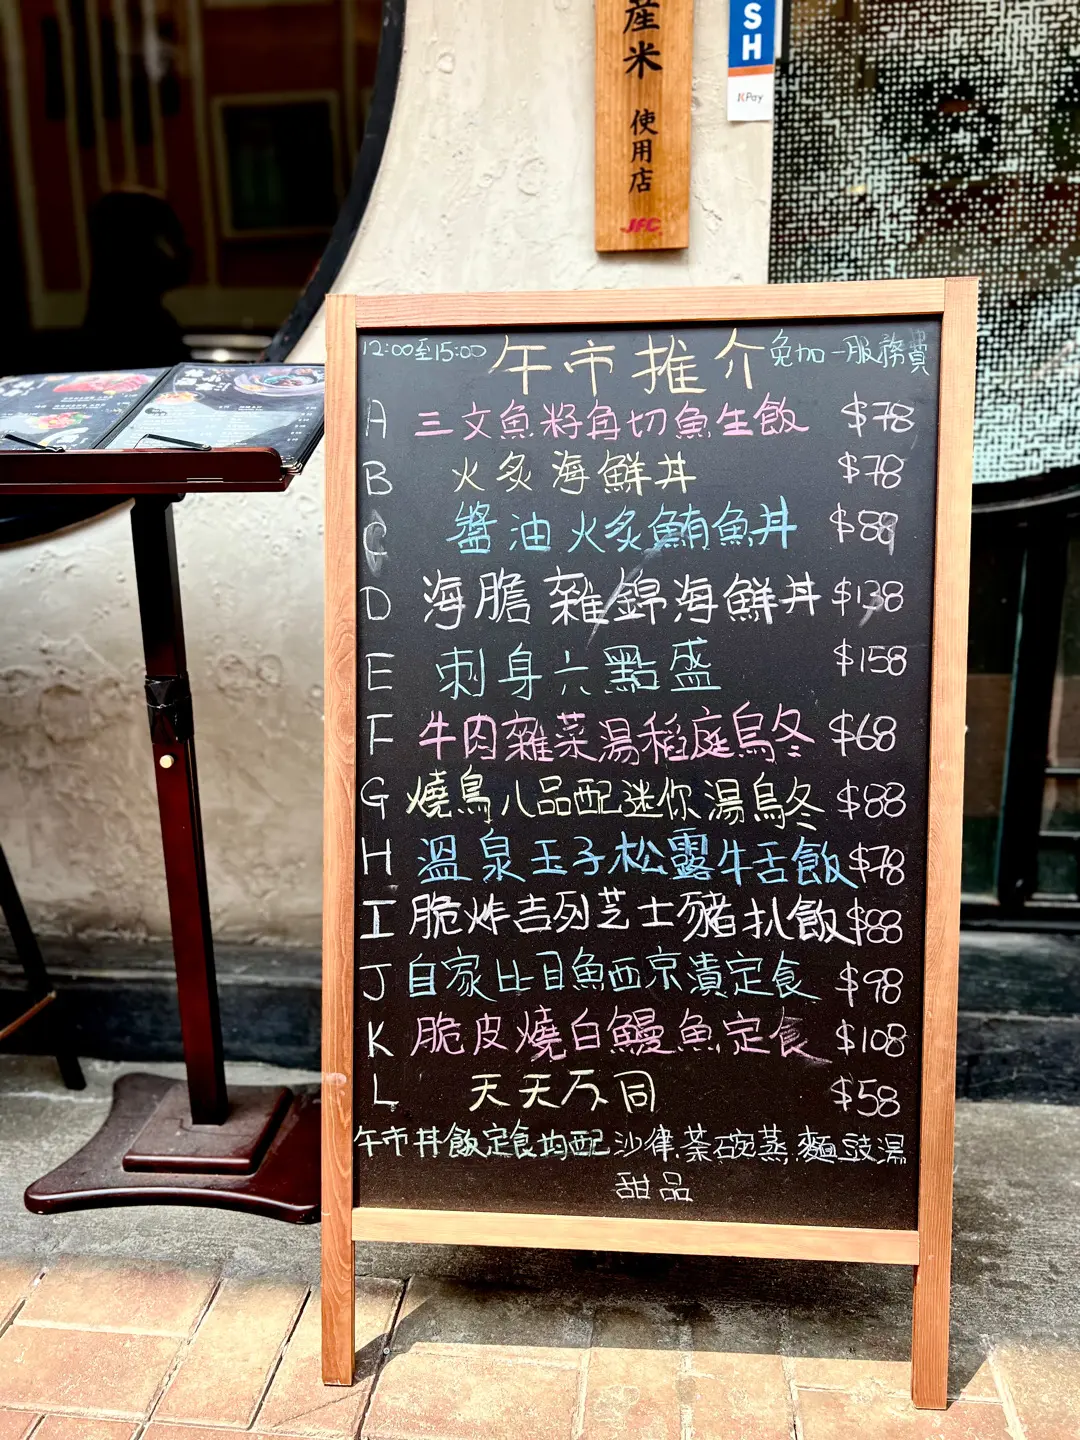 産米 使用店
JFC
SH
KPay
12:00至15:00 午市推介 免加一服務費
A 三文魚籽角切魚生飯 $78
B 火炙海鮮丼 $78
C 醬油火炙鮪魚丼 $88
D 海膽雜錦海鮮丼 $138
E 刺身六點盛 $158
F 牛肉雜菜湯稻庭烏冬 $68
G 燒鳥八品配迷你湯烏冬 $88
H 溫泉玉子松露牛舌飯 $78
I 脆炸吉列芝士豬扒飯 $88
J 自家比目魚西京漬定食 $98
K 脆皮燒白鰻魚定食 $108
L 天天不同 $58
午市丼飯定食均配沙律.茶碗蒸.麵豉湯
甜品